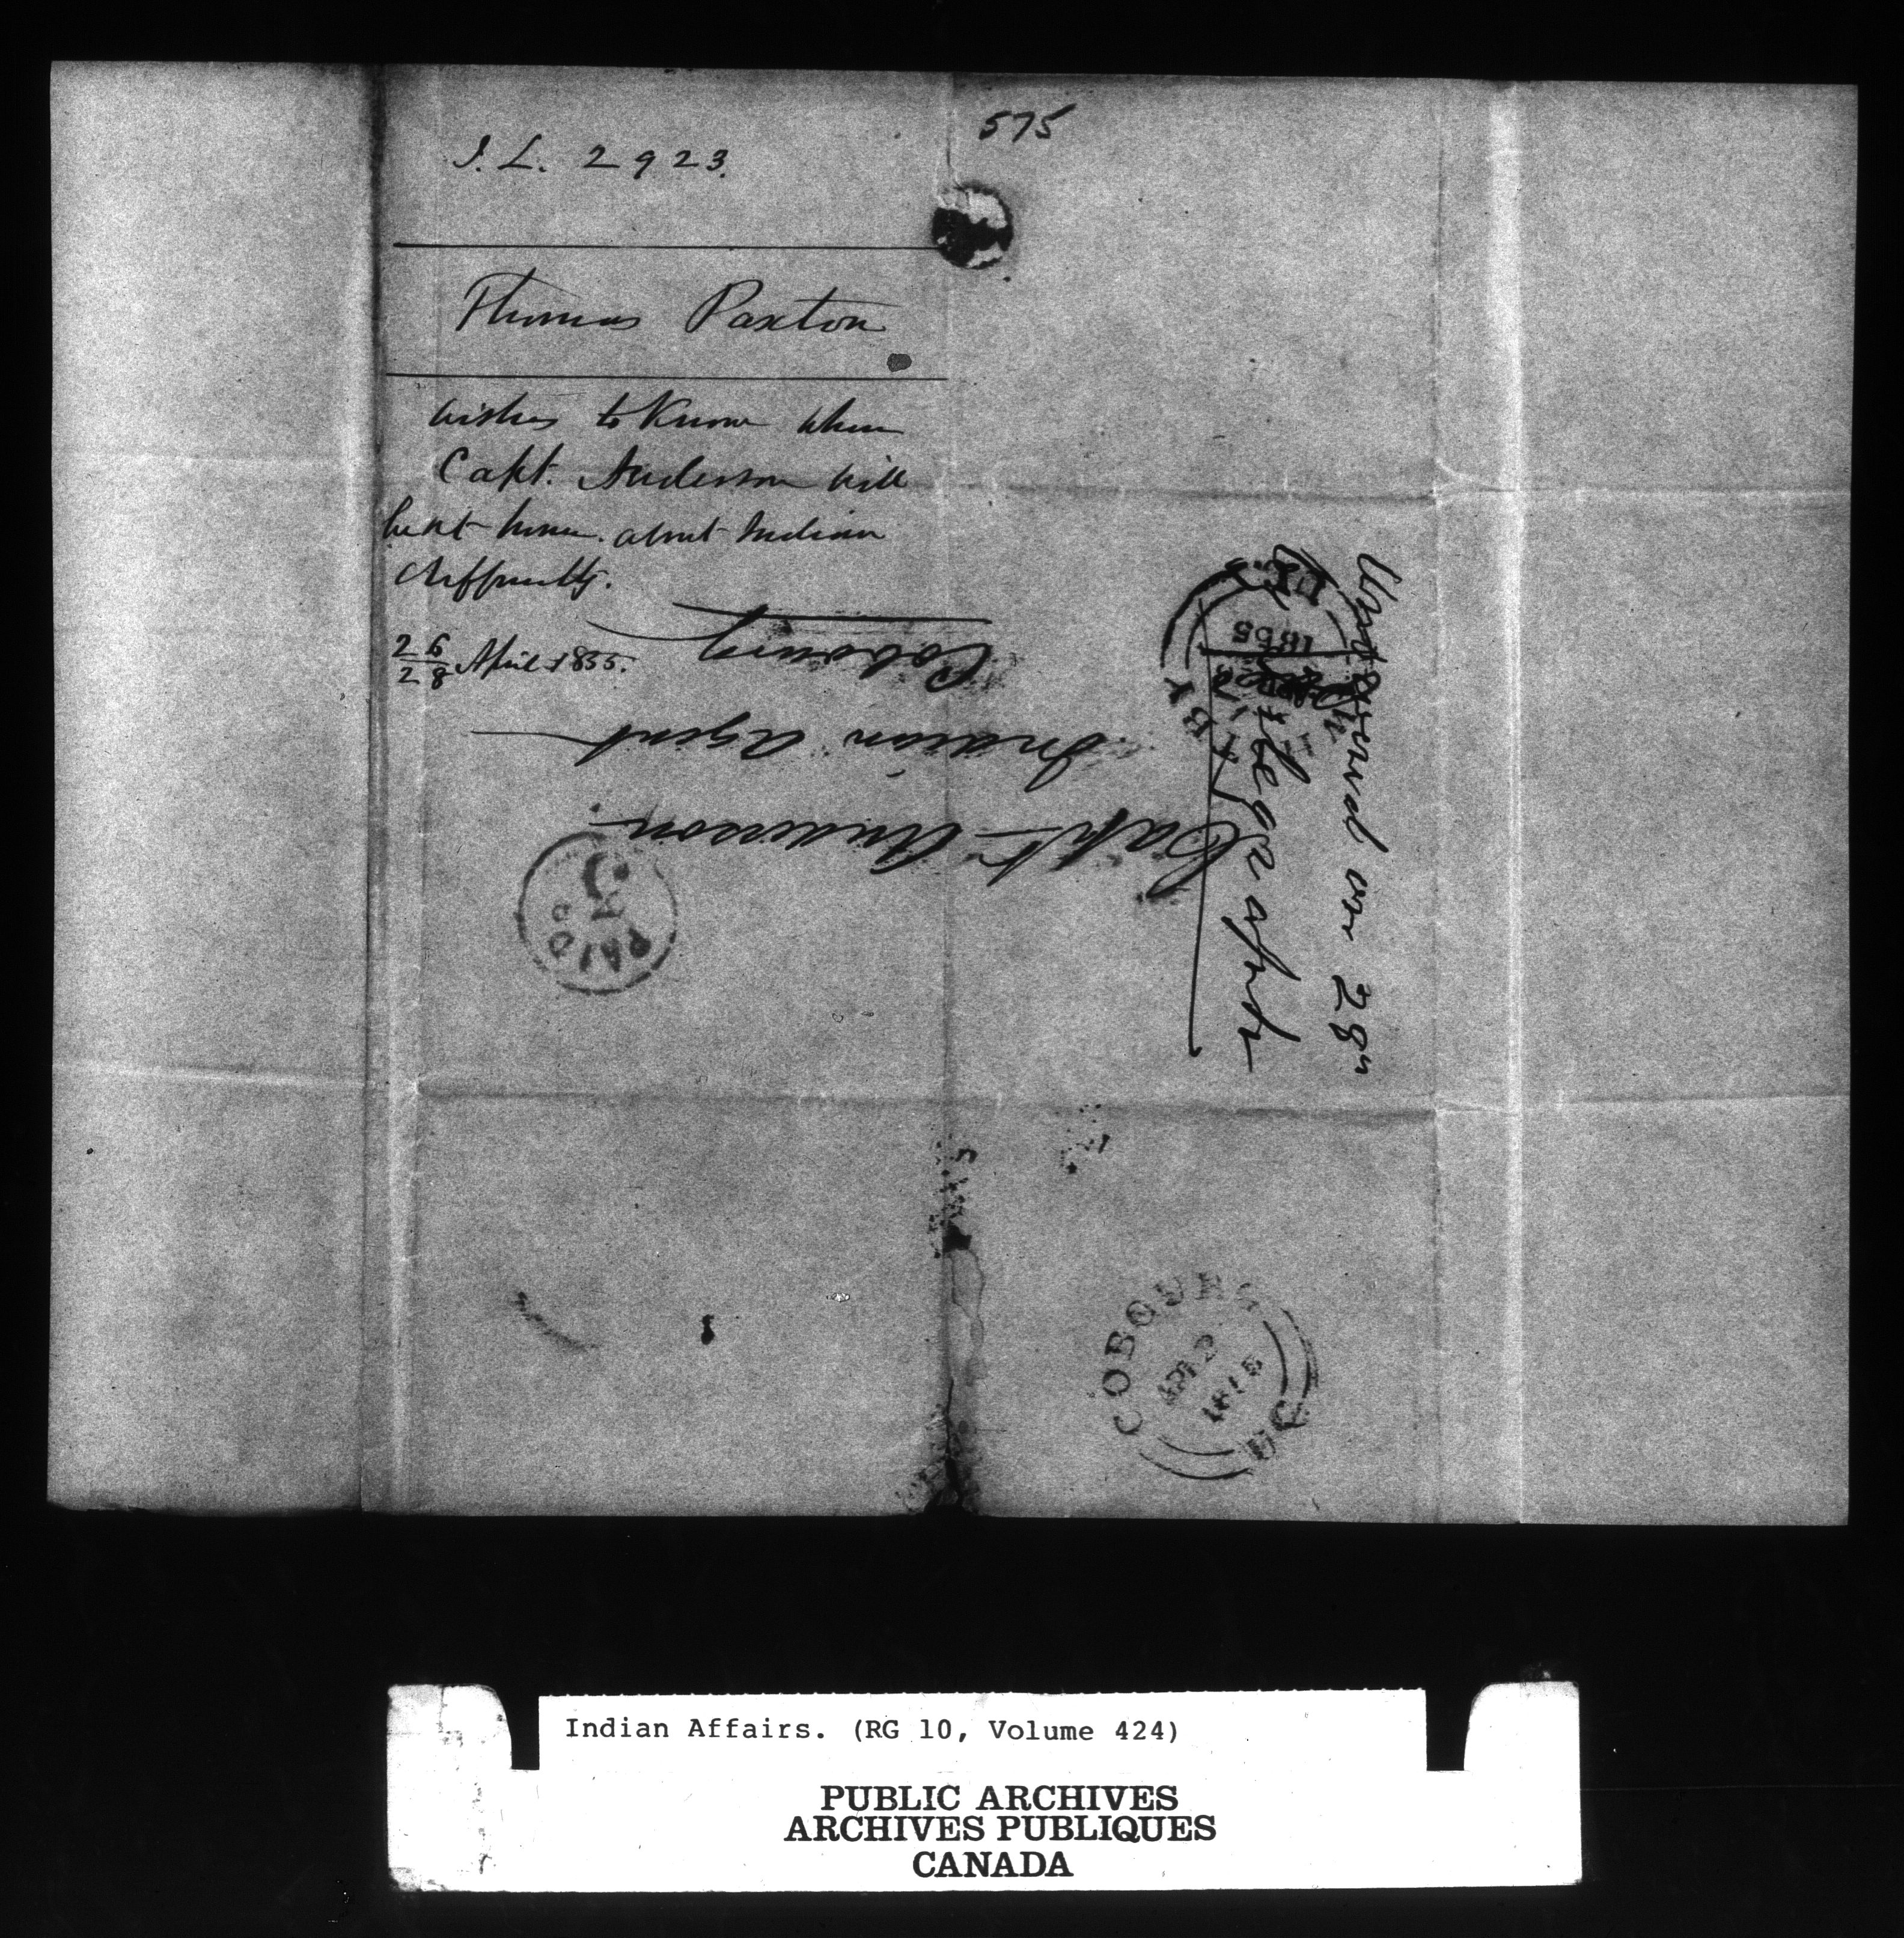 575
I. L. 2923.
Thomas Paxton
wishes to know when
Capt. Anderson will
be at home. about Indian
difficulty.
26/28 April 1855.
Capt Anderson
Indian Agent
Cobourg
PAID
3
on 28"
by telegraph
1855
COBOURG
U.C.
Indian Affairs. (RG 10, Volume 424)
PUBLIC ARCHIVES
ARCHIVES PUBLIQUES
CANADA